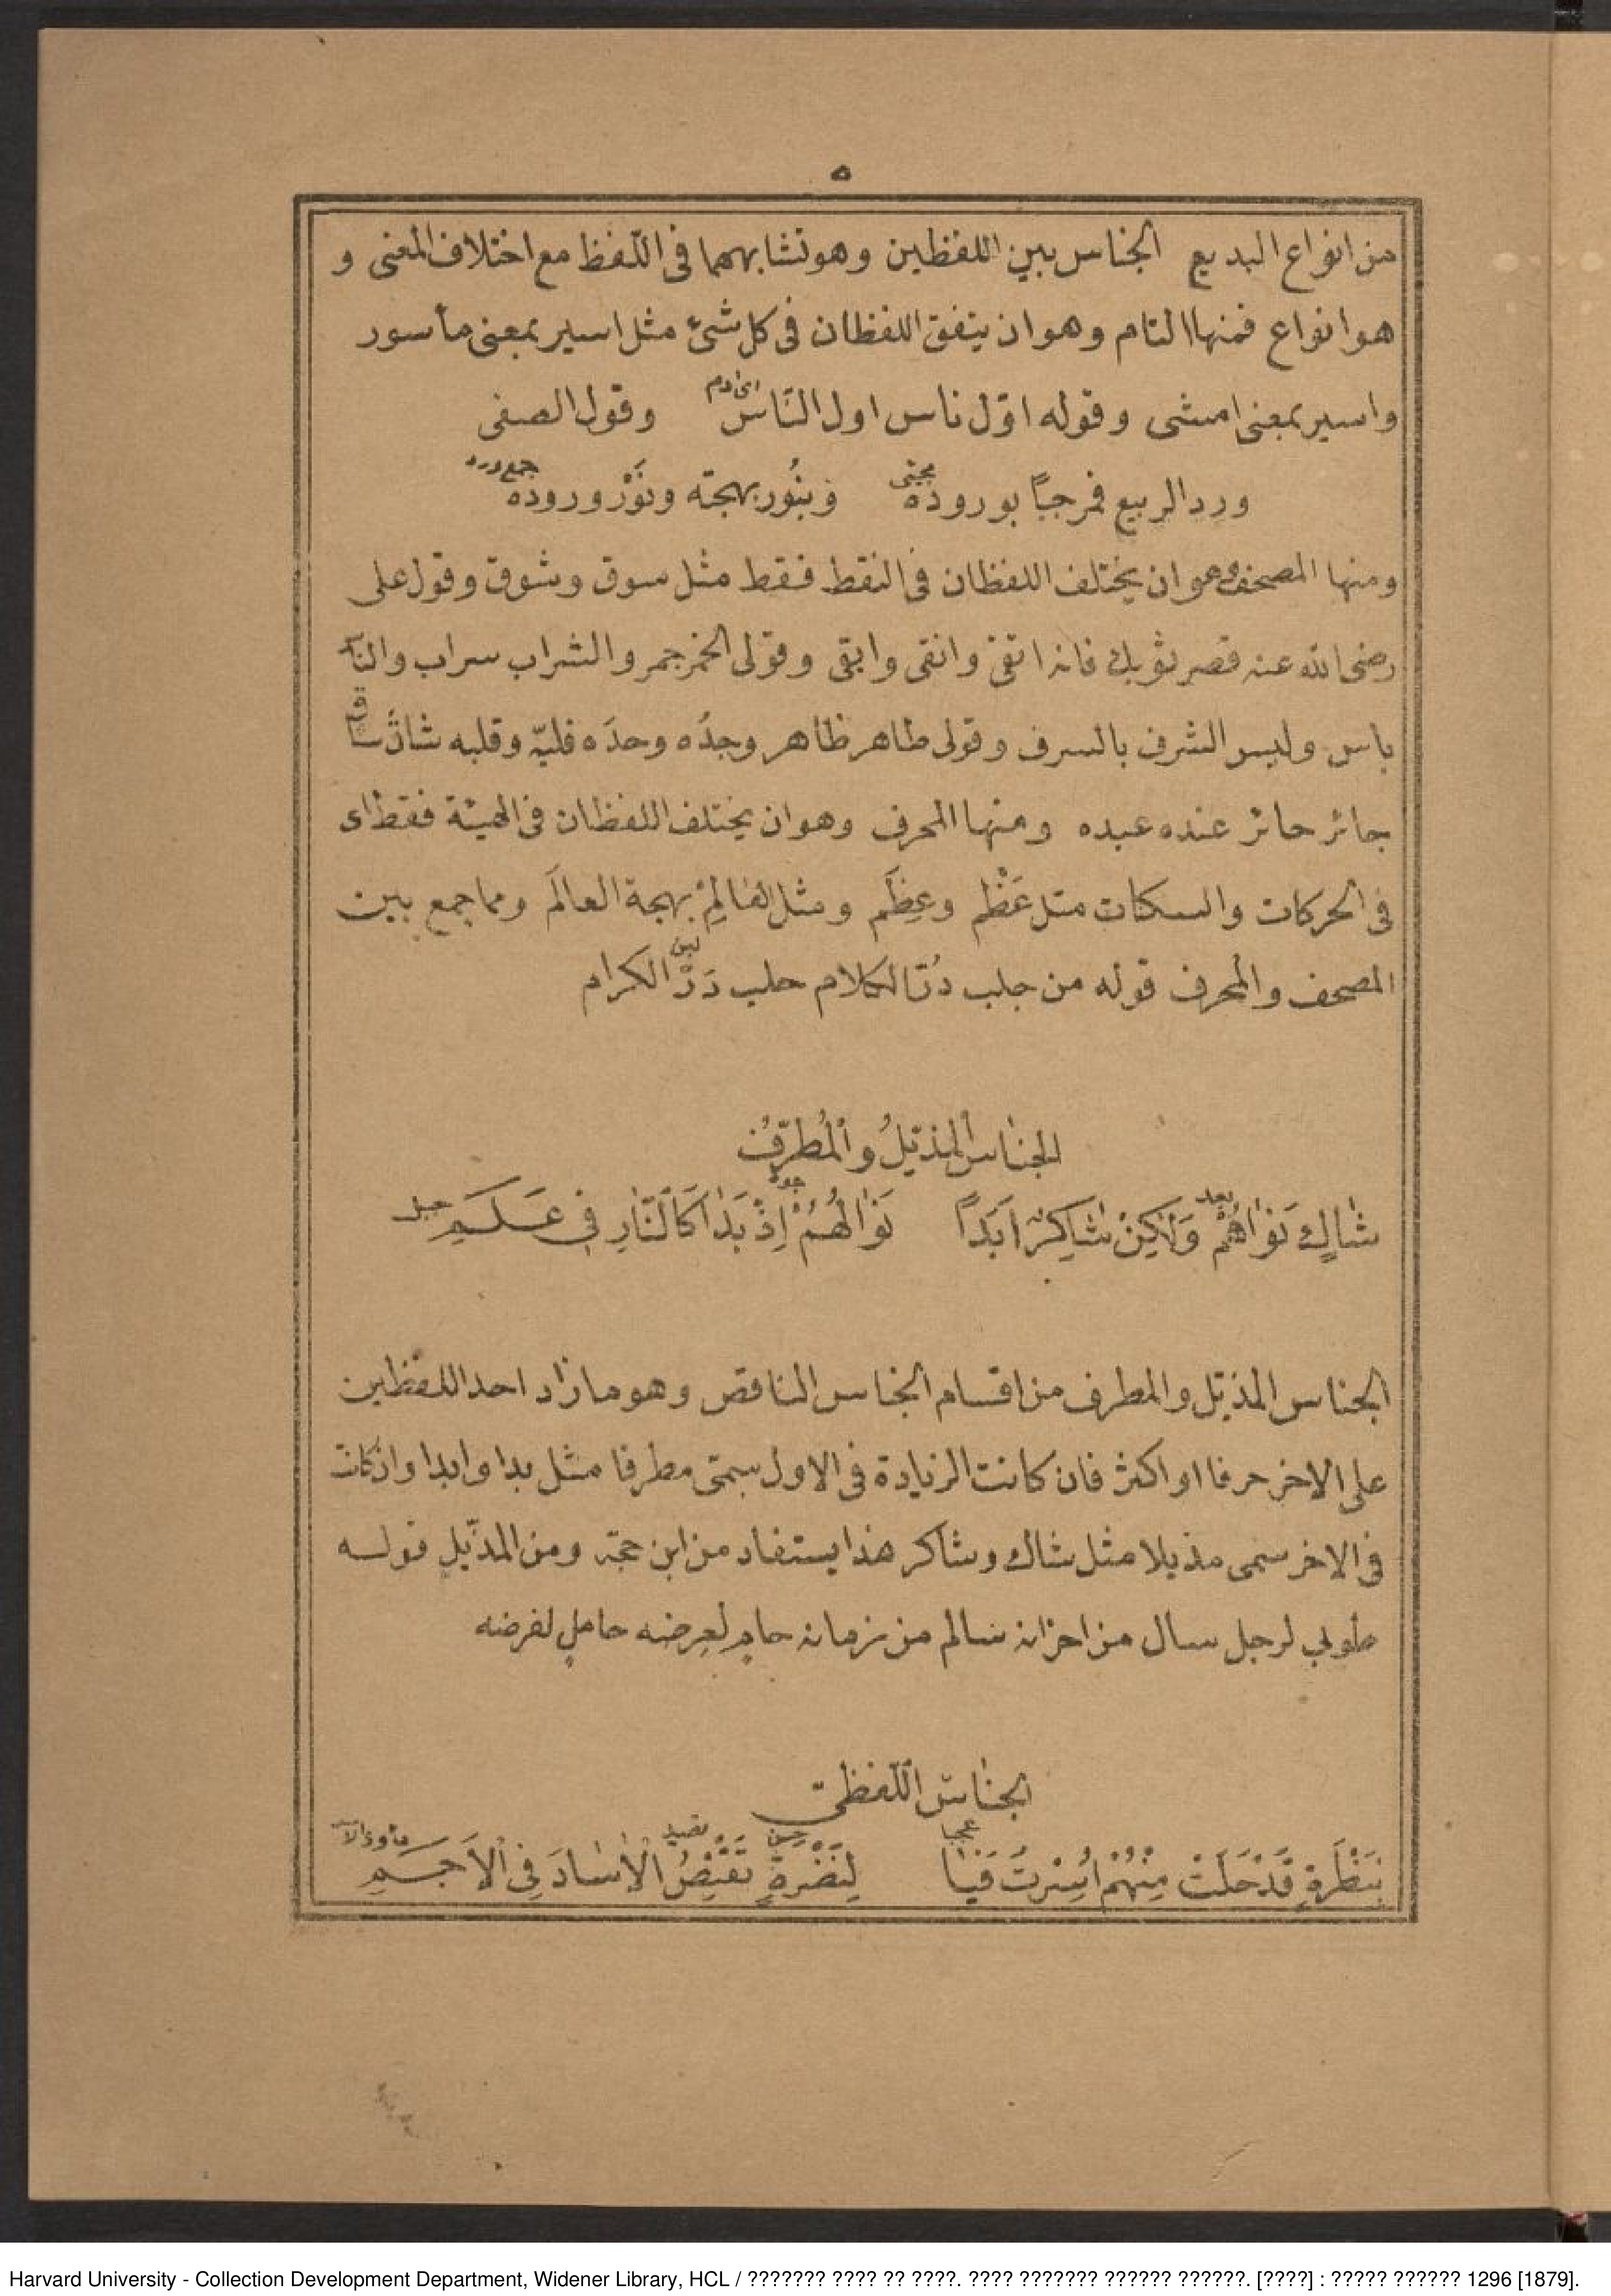 ٥
من انواع البديع الجناس بين اللفظين وهو تشابههما فى اللّفظ مع اختلاف المعنى و
هو انواع فمنها التام وهو ان يتفق اللفظان فى كل شئ مثل اسير بمعنى مأسور
واسير بمعنى امشى وقوله اوّل ناس اول النّاس اى ادم وقول الصفى
ورد الربيع فمرحبًا بوروده مجيئى وبنُور بهجته ونَوْر وروده جمع ورد
ومنها المصحف وهو ان يختلف اللفظان فى النقط فقط مثل سوق وشوق وقول على
رضى الله عنه قصر ثوبك فانه اتقى وانقى وابقى وقولى الخمر جمر والشراب سراب والنا
باس وليس الشرف بالسرف وقولى طاهر ظاهر وجدُه وحدَه فليّه وقلبه شاق ساق
جائر حائر عنده عبده ومنها المحرف وهو ان يختلف اللفظان فى الهيئة فقط اى
فى الحركات والسكنات مثل عَظْم وعِظَم ومثل العالِم بهجة العالَم ومما جمع بين
المصحف والمحرف قوله من جلب دُرّ الكلام حلب دَرّ لبن الكرام
الجناس المذيّلُ والمُطرّفُ
شاكٍ نَواهُمْ بعد وَلكِنْ شاكِرٌ اَبَدًا نَوالَهُمْ جود اِذْ بَدَا كَالنّارِ فِي عَلَمِ جبل
الجناس المذيّل والمطرف من اقسام الجناس الناقص وهو ما زاد احد اللفظين
على الاخر حرفا او اكثر فان كانت الزيادة فى الاول سمّى مطرفا مثل بدا وابدا وان كانت
فى الاخر سمى مذيلا مثل شاك وشاكر هذا يستفاد من ابن حجّة ومن المذيّل قوله
طوبى لرجل سال من احزانه سالم من زمانه حامٍ لعِرضه حاملٍ لفرضه
الجناس اللّفظىّ
بِنَظْرَةٍ قَدْ حَلَتْ مِنْهُمْ اُسِرْتُ فَيَا عجبا لِنَضْرَةٍ حسن تَقْنِصُ تصيد الْاسَادَ فِي الْاَجَمِ